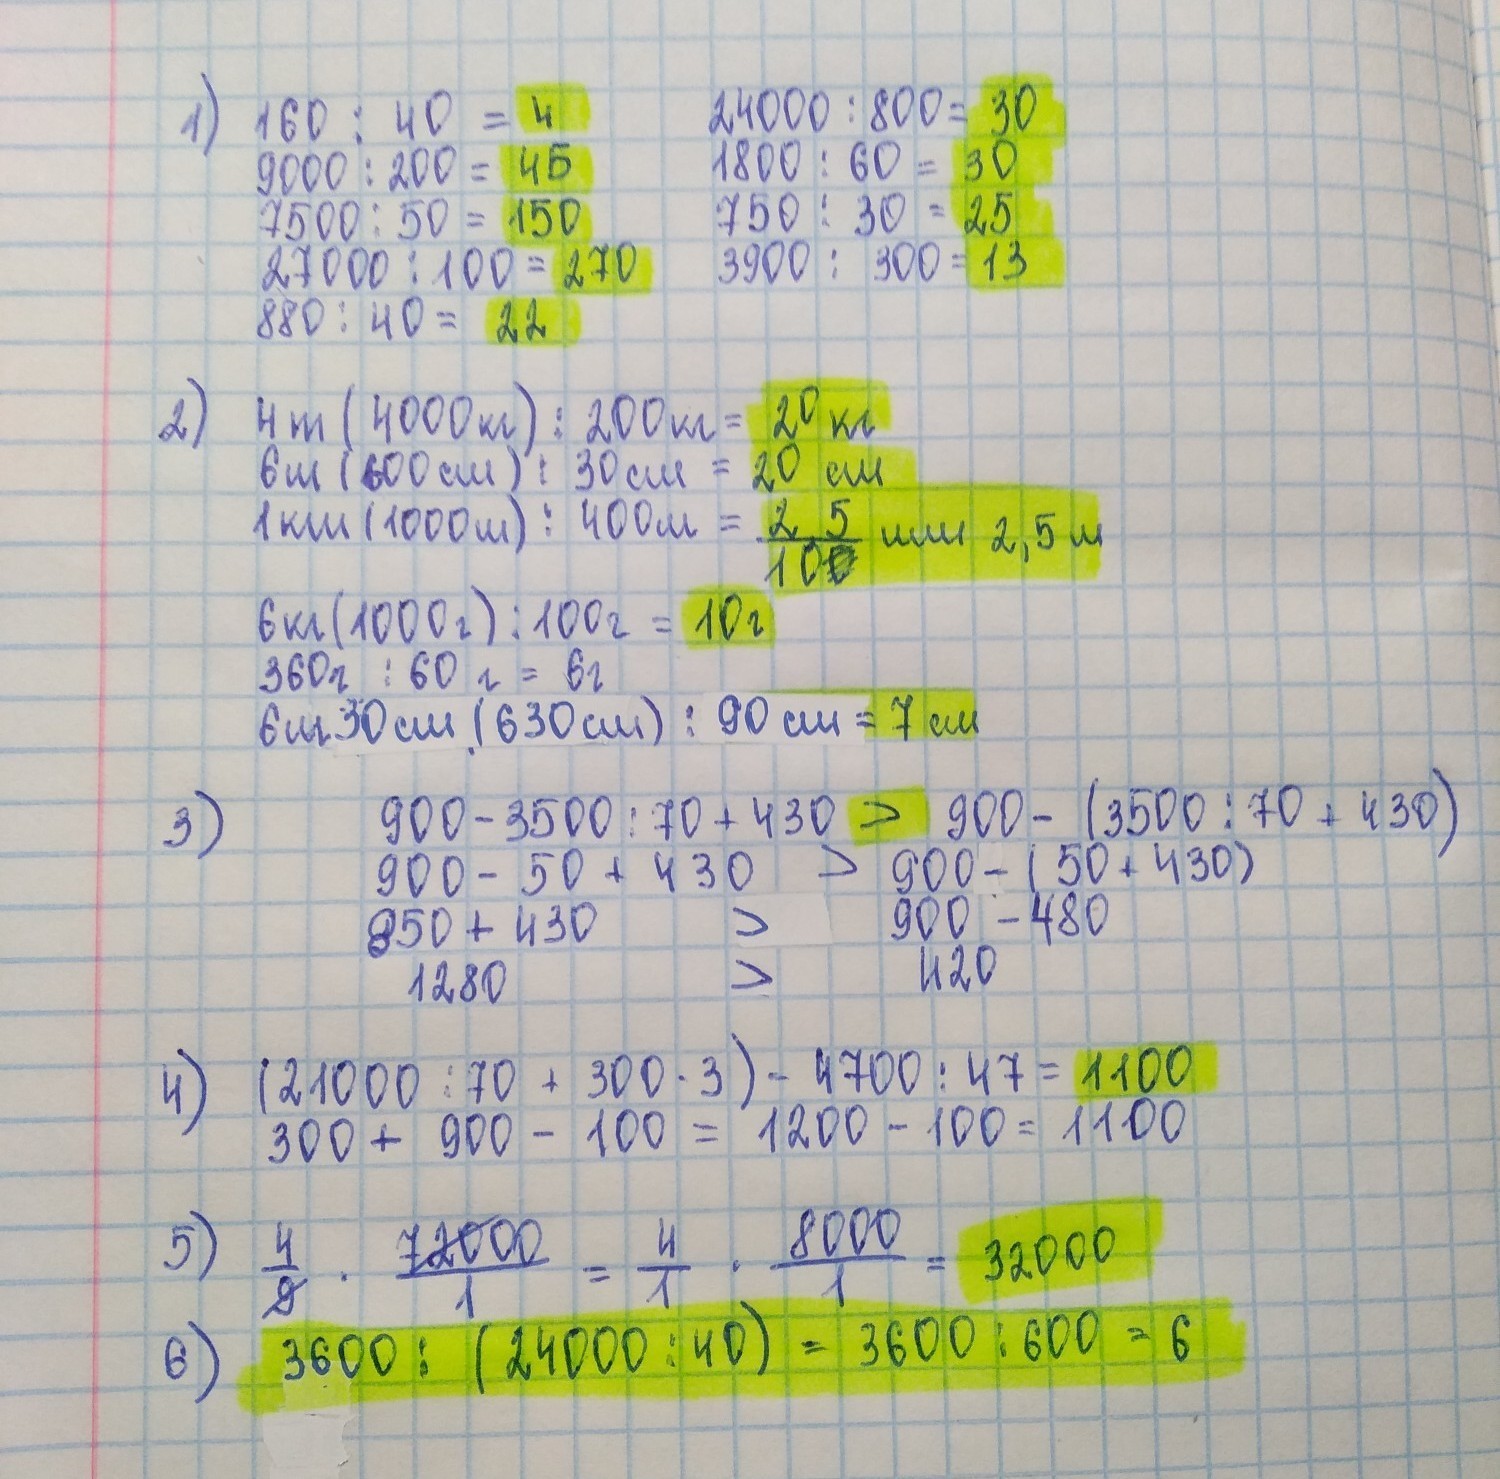 1) 160 : 40 = 4 24000 : 800 = 30
9000 : 200 = 45 1800 : 60 = 30
7500 : 50 = 150 750 : 30 = 25
27000 : 100 = 270 3900 : 300 = 13
880 : 40 = 22
2) 4т (4000кг) : 200кг = 20кг
6м (600см) : 30см = 20 см
1км (1000м) : 400м = 2 5/10 или 2,5м
6кг (1000г) : 100г = 10г
360г : 60 г = 6г
6м 30см (630см) : 90см = 7см
3) 900 - 3500 : 70 + 430 > 900 - (3500 : 70 + 430)
900 - 50 + 430 > 900 - (50 + 430)
850 + 430 > 900 - 480
1280 > 420
4) (21000 : 70 + 300 · 3) - 4700 : 47 = 1100
300 + 900 - 100 = 1200 - 100 = 1100
5) 4/9 · 72000/1 = 4/1 · 8000/1 = 32000
6) 3600 : (24000 : 40) = 3600 : 600 = 6